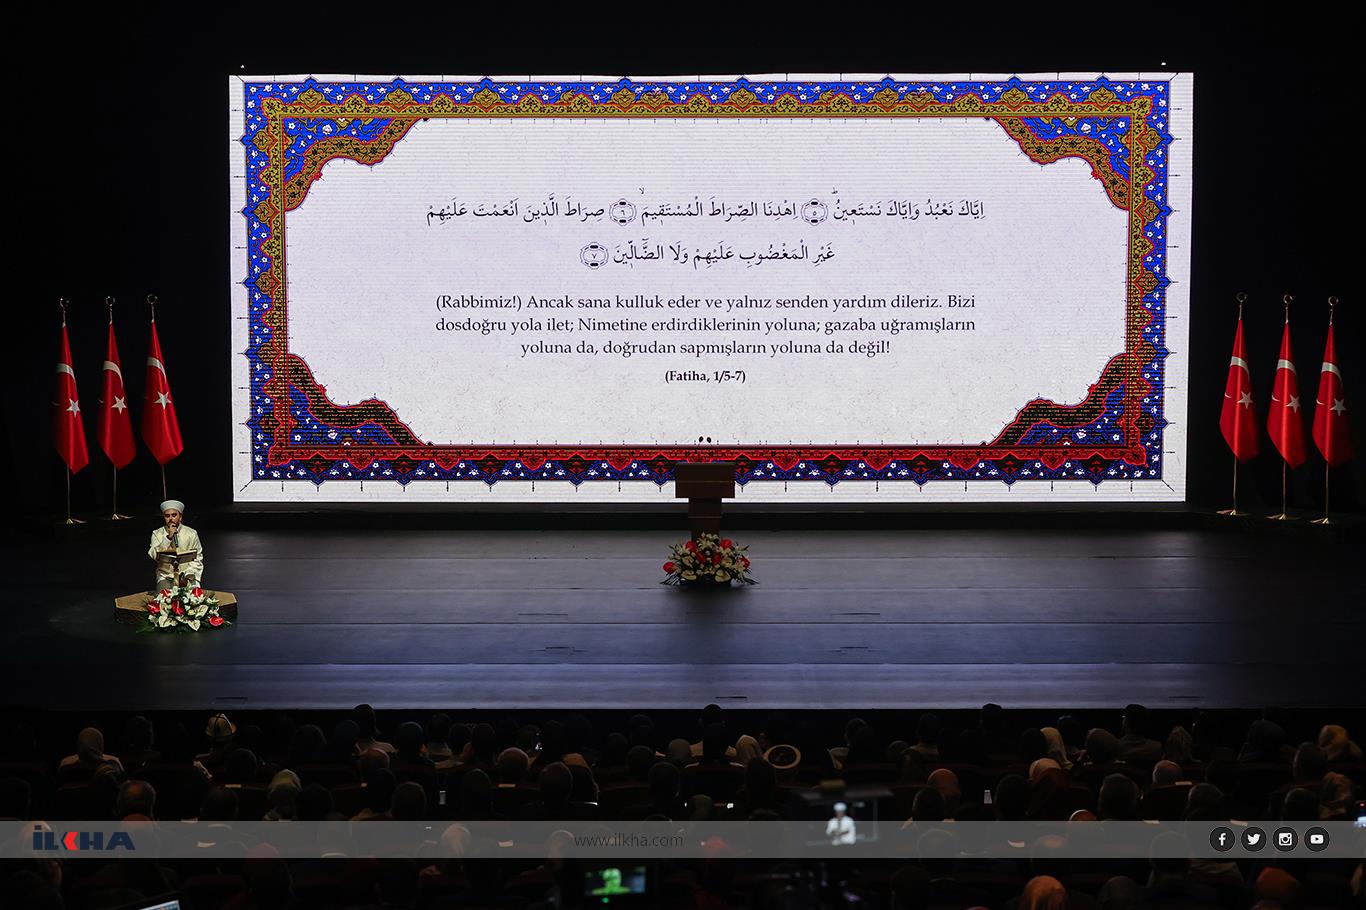 اِيَّاكَ نَعْبُدُ وَاِيَّاكَ نَسْتَع۪ينُۜ ﴿٥﴾ اِهْدِنَا الصِّرَاطَ الْمُسْتَق۪يمَۙ ﴿٦﴾ صِرَاطَ الَّذ۪ينَ اَنْعَمْتَ عَلَيْهِمْ
غَيْرِ الْمَغْضُوبِ عَلَيْهِمْ وَلَا الضَّٓالّ۪ينَ ﴿٧﴾
(Rabbimiz!) Ancak sana kulluk eder ve yalnız senden yardım dileriz. Bizi
dosdoğru yola ilet; Nimetine erdirdiklerinin yoluna; gazaba uğramışların
yoluna da, doğrudan sapmışların yoluna da değil!
(Fatiha, 1/5-7)
İLKHA
www.ilkha.com